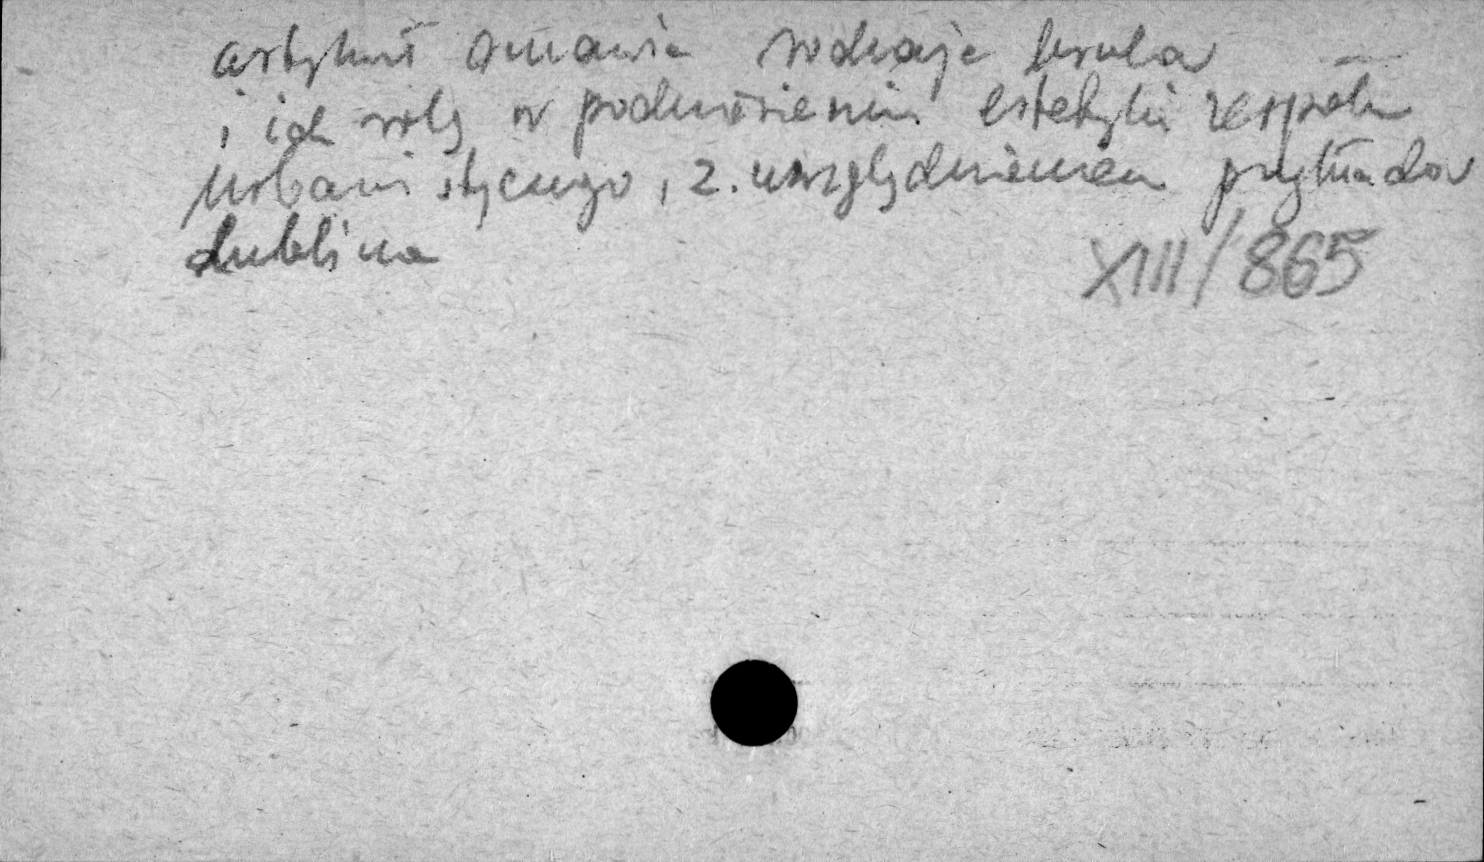 artykuł omawia rodzaje bruku
i ich rolę w podniesieniu estetyki zespołu
urbanistycznego, z uwzględnieniem przykładów
Lublina
XIII/865